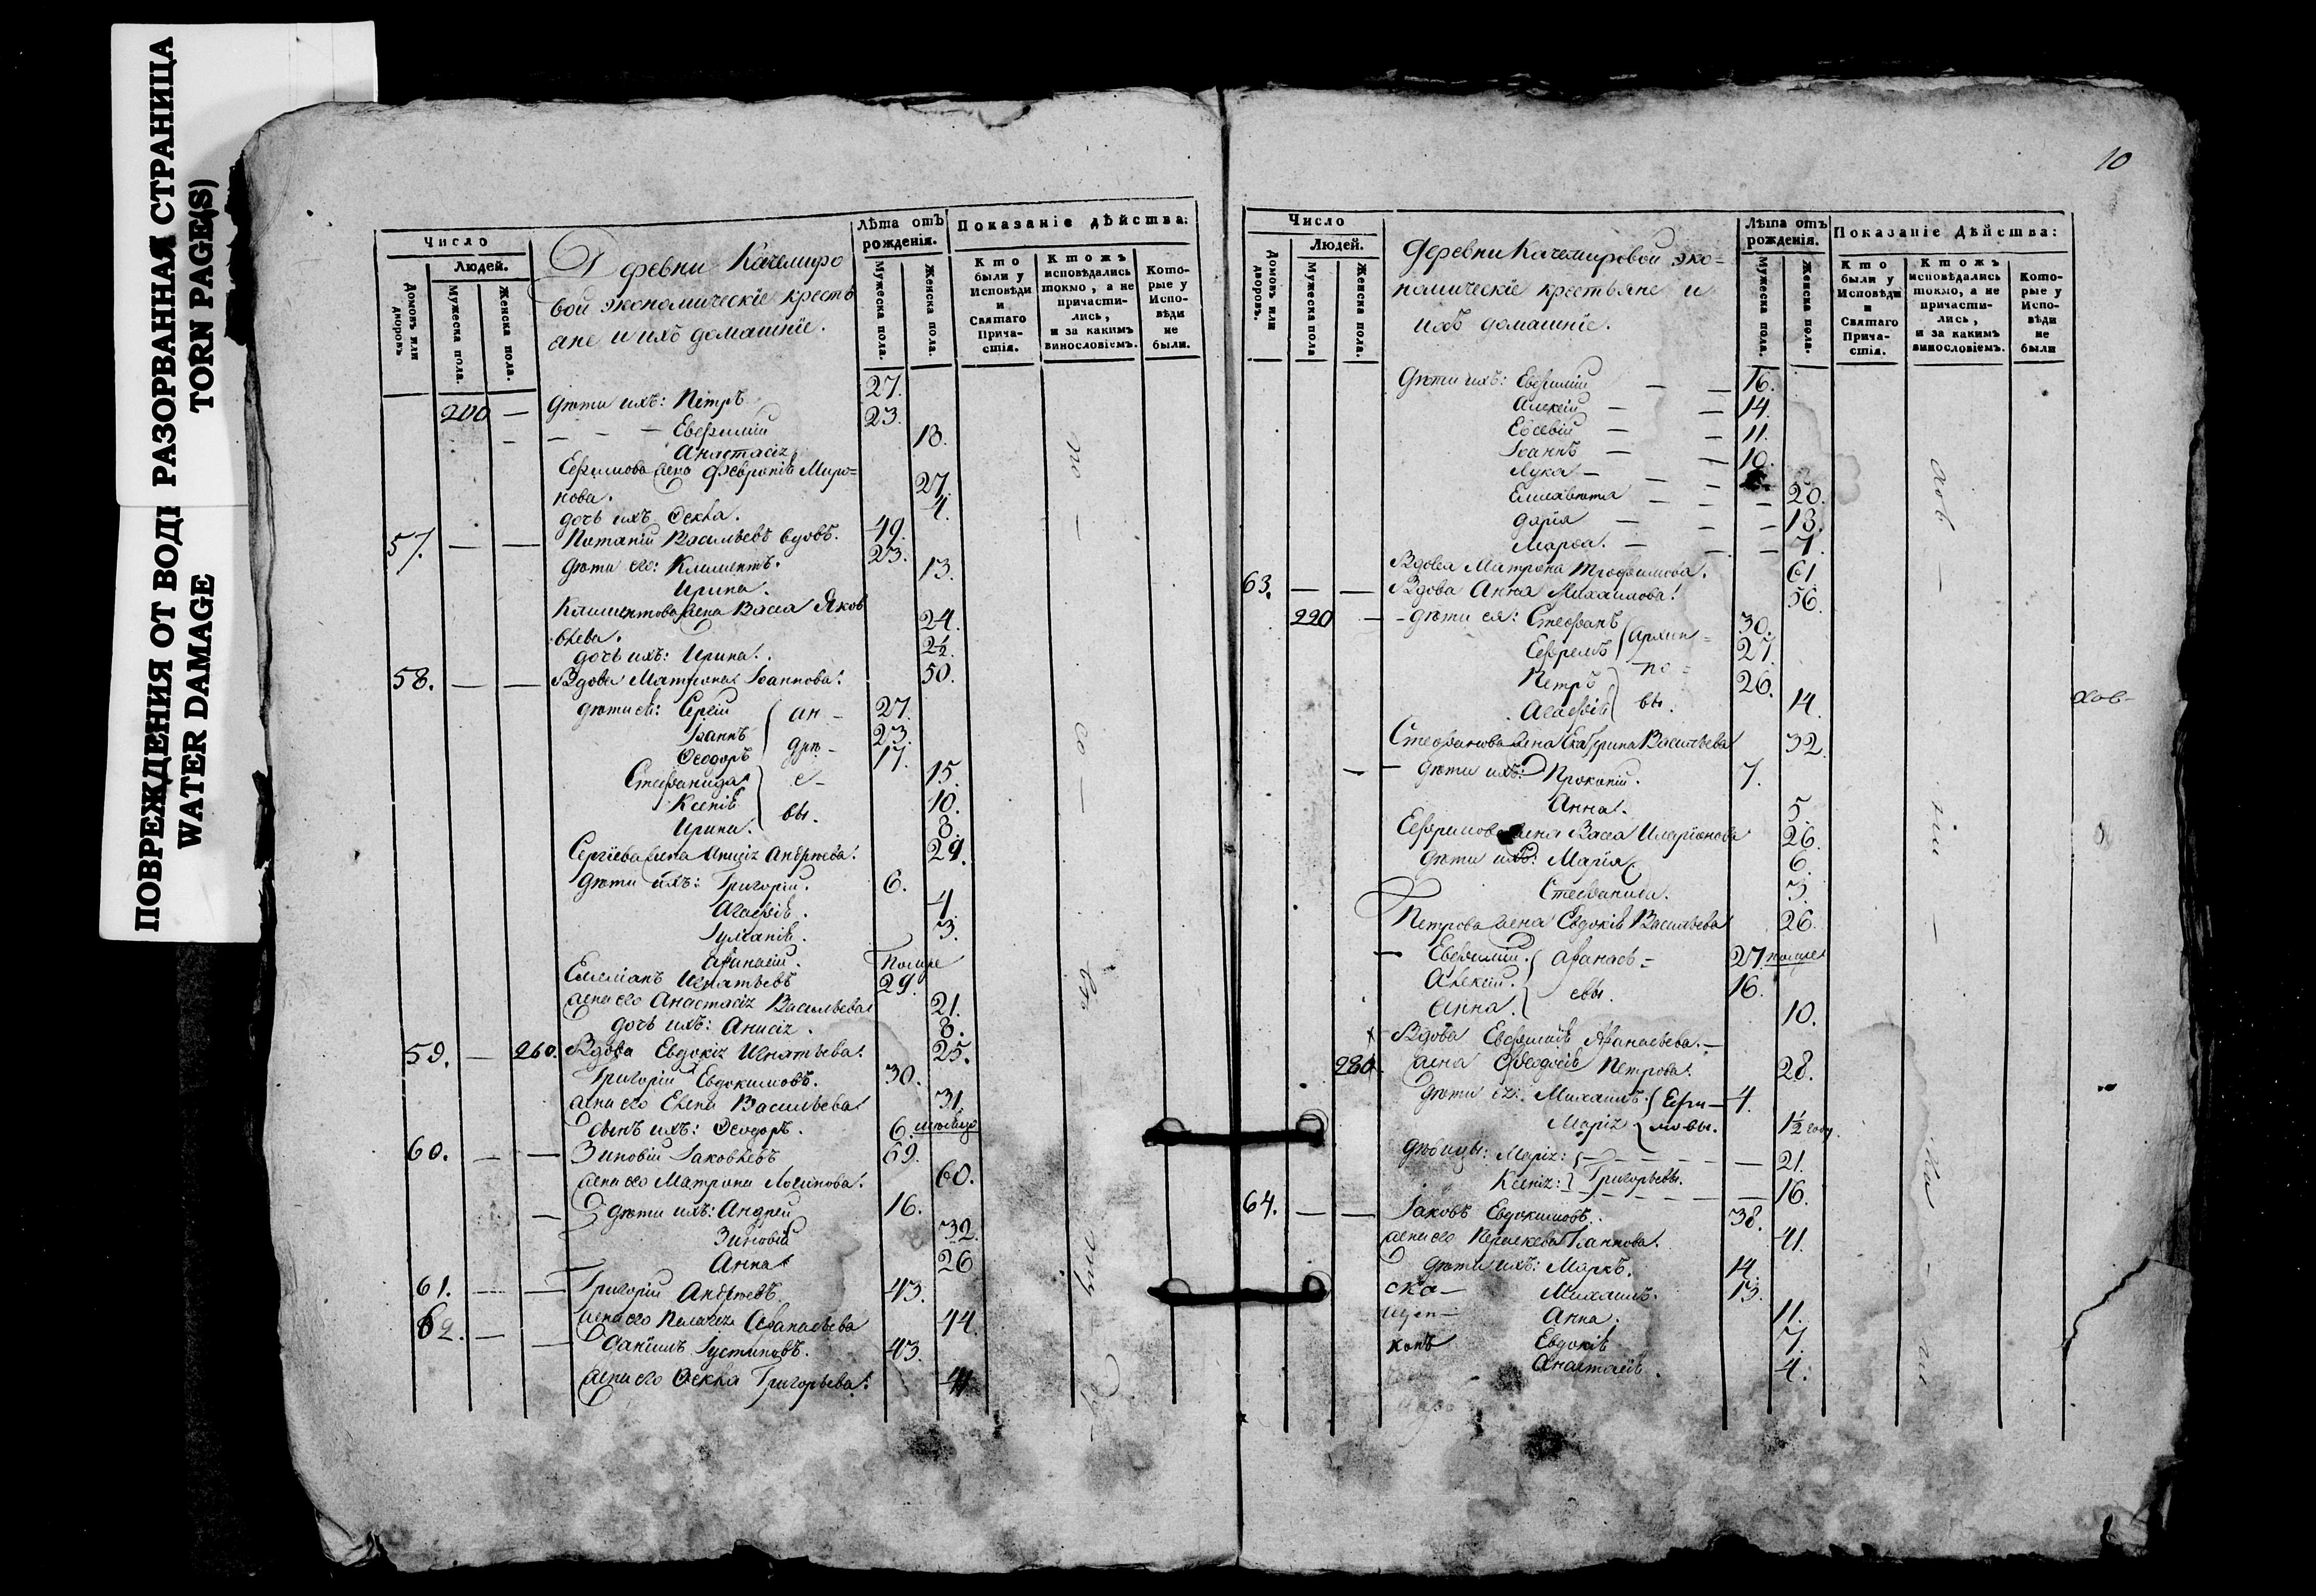 ПОВРЕЖДЕНИЯ ОТ ВОДЫ РАЗОРВАННАЯ СТРАНИЦА
WATER DAMAGE TORN PAGE(S)
Число
Людей.
Домовъ или дворовъ
Мужеска пола.
Женска пола.
Деревни Качемиро
вой экономическіе кресть
яне и ихъ домашніе.
Лѣта отъ рожденія.
Мужеска пола.
Женска пола.
Показаніе дѣйства:
Кто были у Исповѣди и Святаго Прича- стія.
Ктожъ исповѣдались токмо, а не причасти- лись, и за какимъ винословіемъ.
Кото- рые у Испо- вѣди не были.
200 — дѣти ихъ: Петръ 27.
Евфимій 23.
Анастасіѧ 18.
Ефимова жена Февроніѧ Миро=
нова. 27.
дочь ихъ Ѳекла. 4.
57. — — Потапій Васильевъ вдовъ. 49.
дѣти его: Климентъ. 23.
Ирина. 13.
Климентова жена Васса Яков
лева. 24.
дочь ихъ: Ирина. 2½.
58. — — Вдова Матрона Іоаннова. 50.
дѣти еѧ: Сергій 27.
Іоаннъ 23.
Ѳеодоръ 17.
Стефанида 15.
Ксеніѧ 10.
Ирина. 8.
ан-
дре-
е-
вы.
Сергіева жена Анисіѧ Андреева. 29.
дѣти ихъ: Григорій. 6.
Агафіѧ. 4.
Іуліаніѧ. 3.
Афанасій. помре
Емеліанъ Игнатьевъ 29.
жена его Анастасіѧ Васильева 21.
дочь ихъ: Анисіѧ. 8.
59. — 260. Вдова Евдокіѧ Игнатьева. 25.
Григорій Евдокимовъ. 30.
жена его Елена Васильева 31.
сынъ ихъ: Ѳеодоръ. 6.
60. — — Зиновій Іаковлевъ 69.
жена его Матрона Логинова. 60.
— дѣти ихъ: Андрей 16.
Зиновіѧ 32.
Анна 26
61. — — Григорій Андреевъ. 43.
жена его Пелагіѧ Афанасьева 44.
62. — — Даніилъ Іустиновъ. 43.
жена его Ѳекла Григорьева. 41
10
Число
Людей.
Домовъ или дворовъ.
Мужеска пола
Женска пола.
Деревни Качемировой эко=
номическіе крестьяне и
ихъ домашніе.
Лѣта отъ рожденія.
Мужеска пола.
Женска пола.
Показаніе Дѣйства:
Кто были у Исповѣди и Святаго Прича- стія.
Ктожъ исповѣдались токмо, а не причасти- лись, и за какимъ винословіемъ.
Кото- рые у Испо- вѣди не были
дѣти ихъ: Евфимій — — 16.
Алексій — — 14.
Евсевій — — 11.
Іоаннъ — — 10.
Лука — —
Елисавета — — — 20.
Дарія — — — 13.
Марѳа. — — — 7.
Вдова Матрона Трофимова. 61.
63. — — Вдова Анна Михаилова. 56.
220 — дѣти еѧ: Стефанъ 30.
Ефремъ 27.
Петръ 26.
Агафіѧ 14.
Архип=
по=
вы.
Стефанова жена Екатерина Васильева 32.
— — дѣти ихъ: Прокопій. 7.
Анна. 5.
Ефремова жена Васса Иларіонова 26.
дѣти ихъ: Маріѧ 6.
Стефанида. 3.
Петрова жена Евдокіѧ Васильева 26.
— Евфимій. 27 помре
Алексій. 16.
Анна. 10.
Афанась=
евы.
Вдова Евфиміѧ Афанасьева. —
280. жена Ѳеодосіѧ Петрова. 28.
дѣти еѧ: Михаилъ 4.
Маріѧ 1½ году.
Ефи—
мовы.
дѣвицы: Маріѧ: — — 21.
Ксеніѧ: Григорьевы. — 16.
64. — — Іаковъ Евдокимовъ. 38.
жена его Параскева Іоаннова. 41.
дѣти ихъ: Маркъ. 14.
Михаилъ. 13.
Анна. 11.
Евдокіѧ 7.
Анастасіѧ. 4.